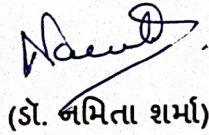 (ડૉ. નમિતા શર્મા)